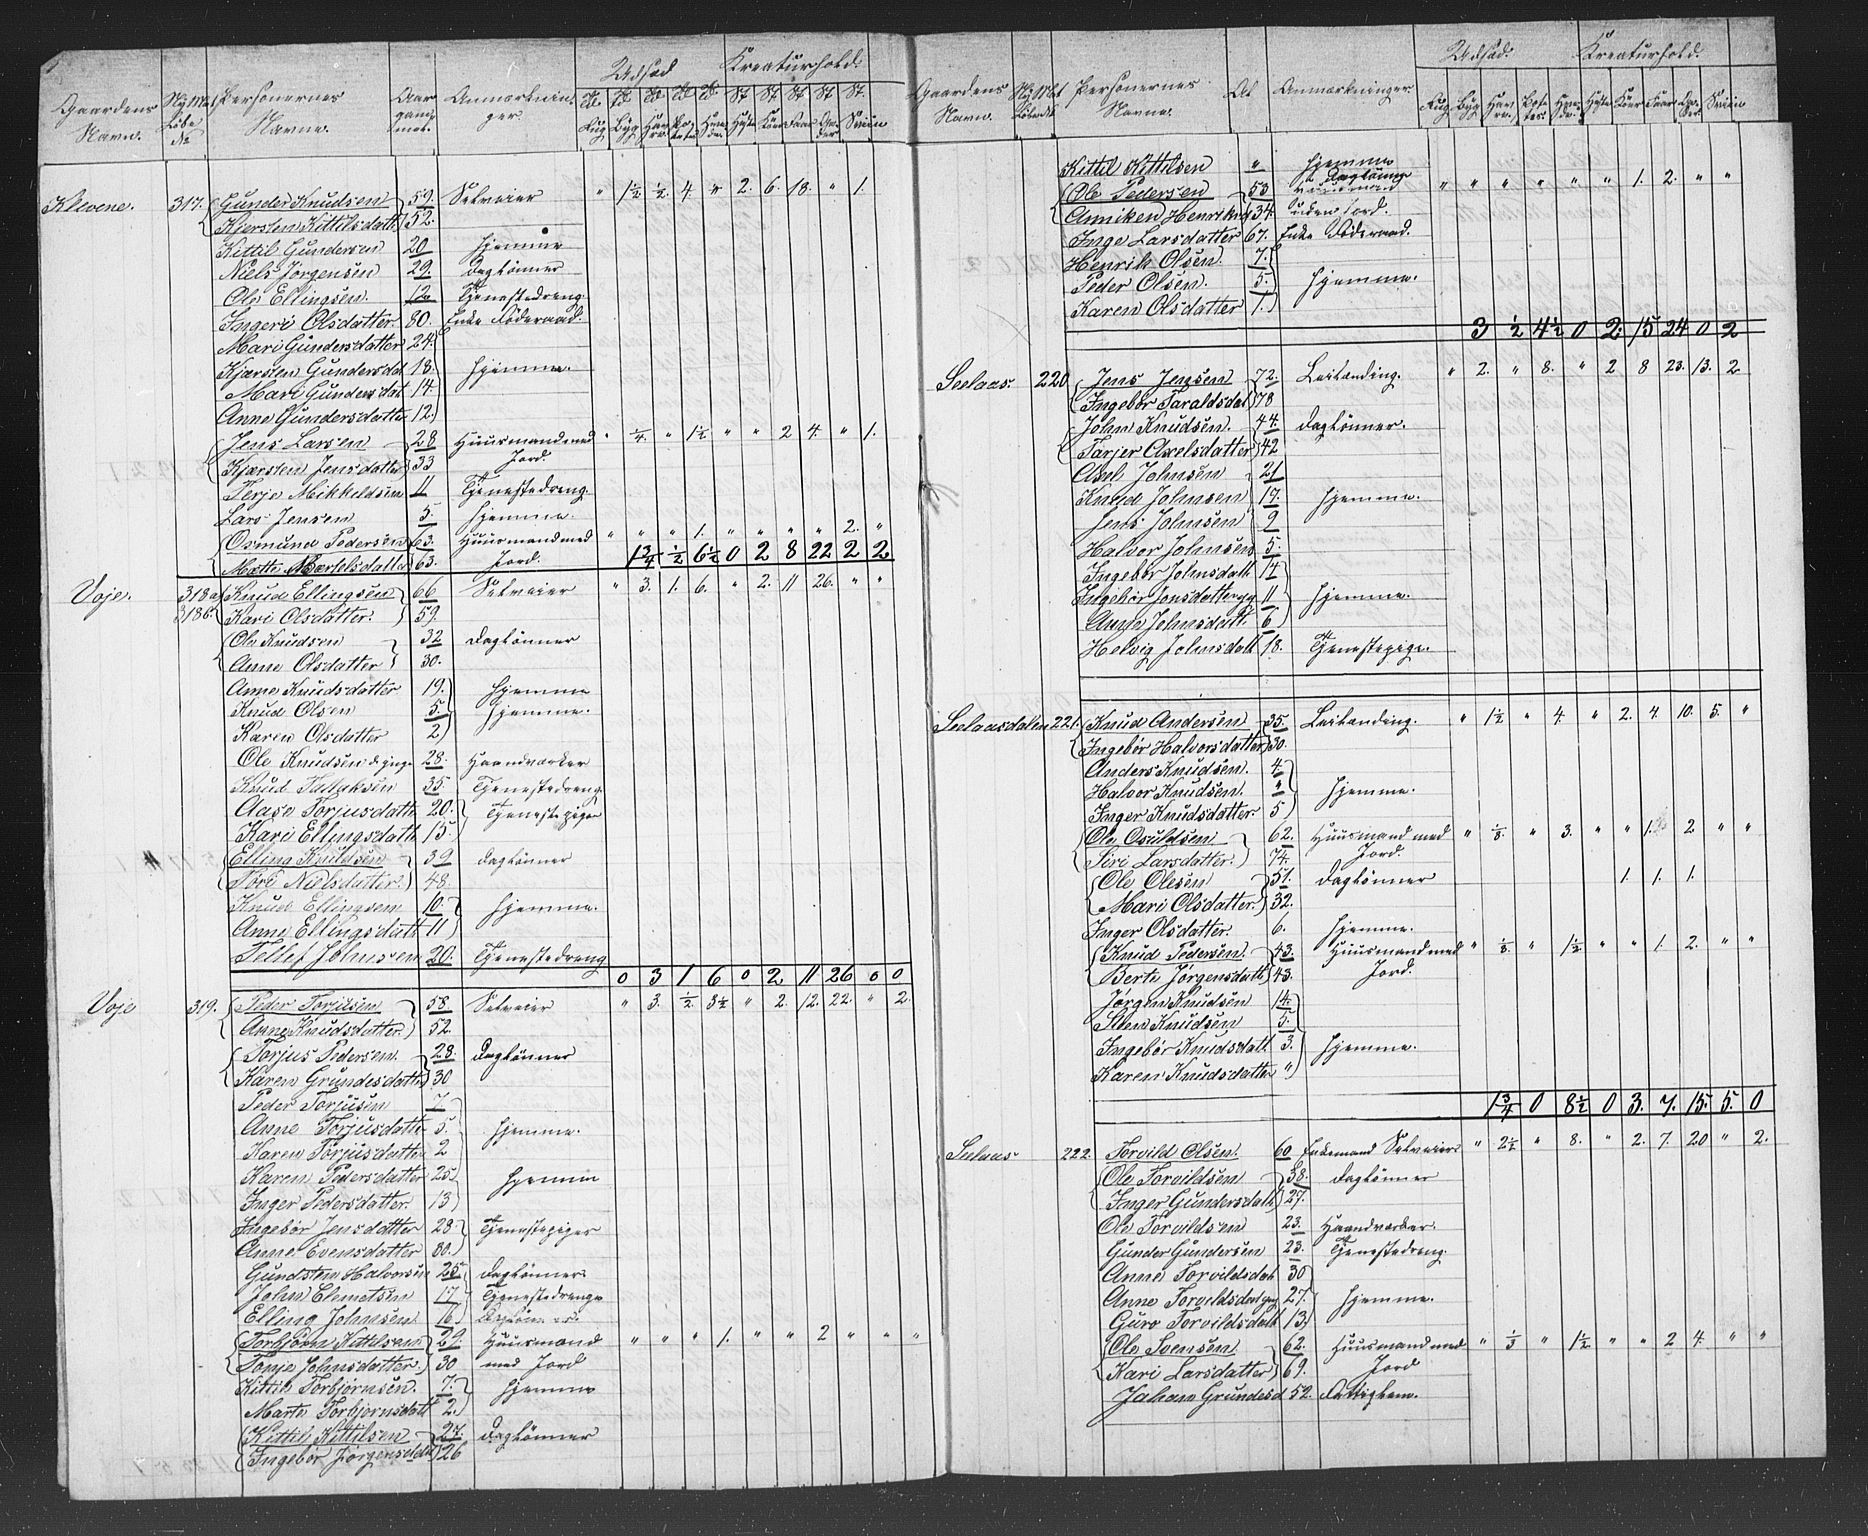 Gaardens Navn. | Ny Mat Løbe № | Personernes Navne. | Aar gammel. | Anmærkninger. | Udsæd | Kreaturhold.
Rug | Byg | Havre | Potetes | Heste | Køer | Faar | Sviin
Klevene. 317. Gunder Knudsen 59. Selveier " 1½. ½. 4 " 2. 6. 18. " 1.
Kjersten Kittilsdatt. 52.
Kittil Gundersen 20 hjemme
Niels Jørgensen 29. Daglønner
Ole Ellingsen. 12 Tjenestedreng.
Ingeri Olsdatter. 80. Enke Føderaad.
Mari Gundersdatter 24.
Kjærsten Gundersdat. 18. hjemme.
Mari Gundersdat 14.
Anne Gundersdatter 12.
Jens Larsen 28 Huusmand med Jord. " ¼. " 1½ " " 2 4. " 1.
Kjærsten Jensdatter 33
Terje Mikkeldsen 11 Tjenestedreng.
Lars Jensen 5. hjemme.
Osmund Pedersen 63. Huusmand med Jord. " " " 1. " " " " 2. "
Mætte Mærtelsdatter 63.
1¾ ½ 6½ 0 2 8 22 2 2
Voje. 318a Knud Ellingsen 66 Selveier " 3. 1. 6. " 2. 11 26. " "
318b. Kari Olsdatter. 59.
Ole Knudsen 32 Dagtønner
Anne Olsdatter 30.
Anne Knudsdatter 19. hjemme
Knud Olsen 5. hjemme.
Karen Olsdatter 2
Ole Knudsen d. yng. 28. Haandværker
Knud Tallaksen 35. Tjenestedreng.
Aase Torjusdatt. 20. Tjenestepiger
Kari Ellingsdatt. 15.
Elling Knudsen 39 Dagtønner
Tore Nielsdatter. 48.
Knud Ellingsen 10. hjemme.
Anne Ellingsdatt 11
Tellef Johnsen 20. Tjenestedreng
0 3 1 6 0 2 11 26 0 0
Voje 319. Peder Torjusen 58 Selveier " 3. ½. 3½ " 2. 12. 22. " 2.
Anne Knudsdatter. 52.
Torjus Pedersen. 28. Dagtønner
Karen Grundesdatter 30
Peder Torjusen 7.
Anne Torjusdatter 5. hjemme.
Karen Torjusdatter 2
Karen Pedersdatter 25 hjemme
Inger Pedersdatter. 13
Ingebør Jensdatter 28. Tjenestepiger
Anne Evensdatter 80.
Gundsten Halvorsen 25 Dagtønner
John Clemetsen 17 Tjenestedreng
Elling Johnsen 16
Torbjørn Kittilsen 29. Huusmand " " " 1. " " 2 " " "
Tonje Johnsdatter. 30 med Jord
Kittil Torbjørnsen. 7. hjemme
Marte Torbjørnsdatt 2.
Kittil Kittilsen 27. Dagtønner
Ingebør Jørgensdatt 26
Gaardens Navn. | Ny Mat Løbe № | Personernes Navne. | Al | Anmærkninger | Udsæd. | Kreaturhold.
Rug | Byg | Havre | Potetes | Heste | Køer | Faar | Sviin
Kittil Kittilsen " hjemme
Ole Pedersen 53 Dagtønner huusmand " " " " " " 1. 2. " "
Anniken Henriksd 34. uden Jord.
Inge Larsdatter 67. Enke Føderaad.
Henrik Olsen. 7.
Peder Olsen. 5. hjemme.
Karen Olsdatter 1.
3 ½ 4½ 0 2. 15 24 0 2
Seelaas. 220 Jens Jensen 72. Leilending. " 2. " 8. " 2 8 23. 13. 2
Ingebør Taraldsdat 78
John Knudsen. 44. Dagtønner.
Tarjer Axelsdatter 42
Axel Johnsen 21
Knud Johnsen 17. hjemme.
Jens Johnsen 9
Halvor Johnsen 5.
Ingebør Johnsdatt 14
Ingebør Jonsdatter yg 11 hjemme.
Anne Johnsdatt. 6
Helvig Johnsdatt 18. Tjenestepige.
Seelaasdalen 221. Knud Andersen 35. Leilending. " 1½ " 4. " 2. 4. 10. 5. "
Ingebør Halvorsdatter 30.
Anders Knudsen. 4.
Halvor Knudsen. " hjemme.
Inger Knudsdatter. 5
Ole Osuldsen 62. Huusmand med Jord. " ⅛ " 3. " " 1. 2. " "
Siri Larsdatter. 74.
Ole Olesen 51. Dagtønner 1 1. 1.
Mari Olsdatter. 32.
Inger Olsdatter. 6. hjemme.
Knud Pedersen. 43. Huusmand med Jord. " ⅛ " 1½ " " 1. 2. " "
Berte Jørgensdatt 43.
Jørgen Knudsen 14.
Sten Knudsen 5.
Ingebør Knudsdatt 3. hjemme.
Karen Knudsdatter "
1¾ 0 8½ 0 3. 7. 15. 5. 0
Selaas 222. Torvild Olsen. 60 Enkemand Selveier " 2½ " 8. " 2. 7. 20 " 2.
Ole Torvildsen 38. Dagtønner
Inger Gundersdatt 27.
Ole Torvildsen 23. Haandværker.
Gunder Gundersen 23. Tjenestedreng.
Anne Torvildsdat 30
Anne Torvildsdat yng 27. hjemme.
Guro Torvildsdatt 13.
Ole Svensen 62. Huusmand med Jord " ⅓ " 1½. " " 2 4. " "
Kari Larsdatter 69.
Johan Grundesd 52. Fattiglem.